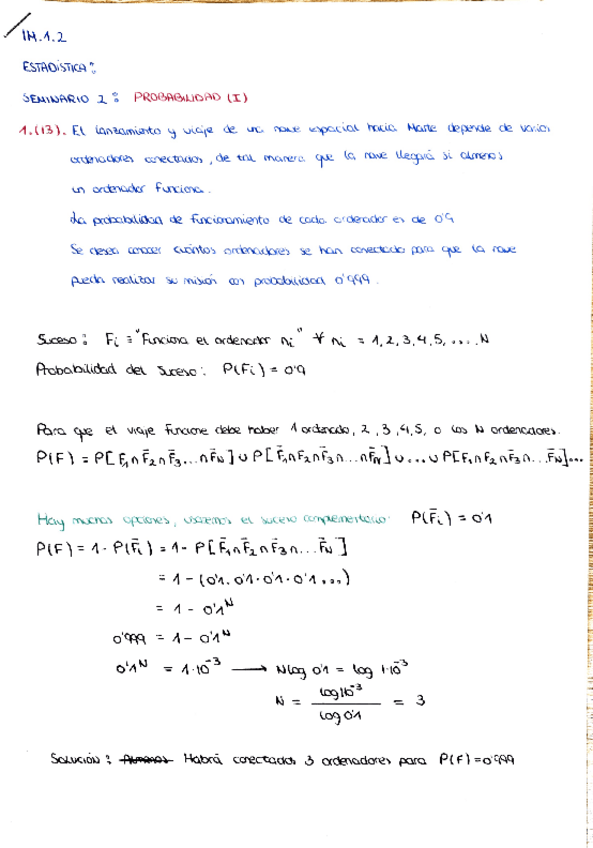 IM.1.2
ESTADÍSTICA:
SEMINARIO 2: PROBABILIDAD (I)
1.(13). El lanzamiento y viaje de una nave espacial hacia Marte depende de varios
ordenadores conectados, de tal manera que la nave llegará si almenos
un ordenador funciona.
La probabilidad de funcionamiento de cada ordenador es de 0'9
Se desea conocer cuántos ordenadores se han conectado para que la nave
pueda realizar su misión con probabilidad 0'999.
Suceso: Fi ≡ "Funciona el ordenador ni" ∀ ni = 1,2,3,4,5,....N
Probabilidad del suceso: P(Fi) = 0'9
Para que el viaje funcione debe haber 1 ordenado, 2, 3, 4, 5, o los N ordenadores.
P(F) = P[F₁∩F̄₂∩F̄₃...∩F̄N] ∪ P[F̄₁∩F₂∩F̄₃∩...∩F̄N] ∪ ... ∪ P[F₁∩F₂∩F̄₃∩...F̄N]...
Hay muchas opciones, usaremos el suceso complementario: P(F̄i) = 0'1
P(F) = 1 - P(F̄i) = 1 - P[F̄₁∩F̄₂∩F̄₃∩...F̄N]
= 1 - (0'1·0'1·0'1·0'1...)
= 1 - 0'1ᴺ
0'999 = 1 - 0'1ᴺ
0'1ᴺ = 1·10⁻³ → N log 0'1 = log 1·10⁻³
N = log 1·10⁻³ / log 0'1 = 3
Solución: Almenos Habrá conectados 3 ordenadores para P(F)=0'999